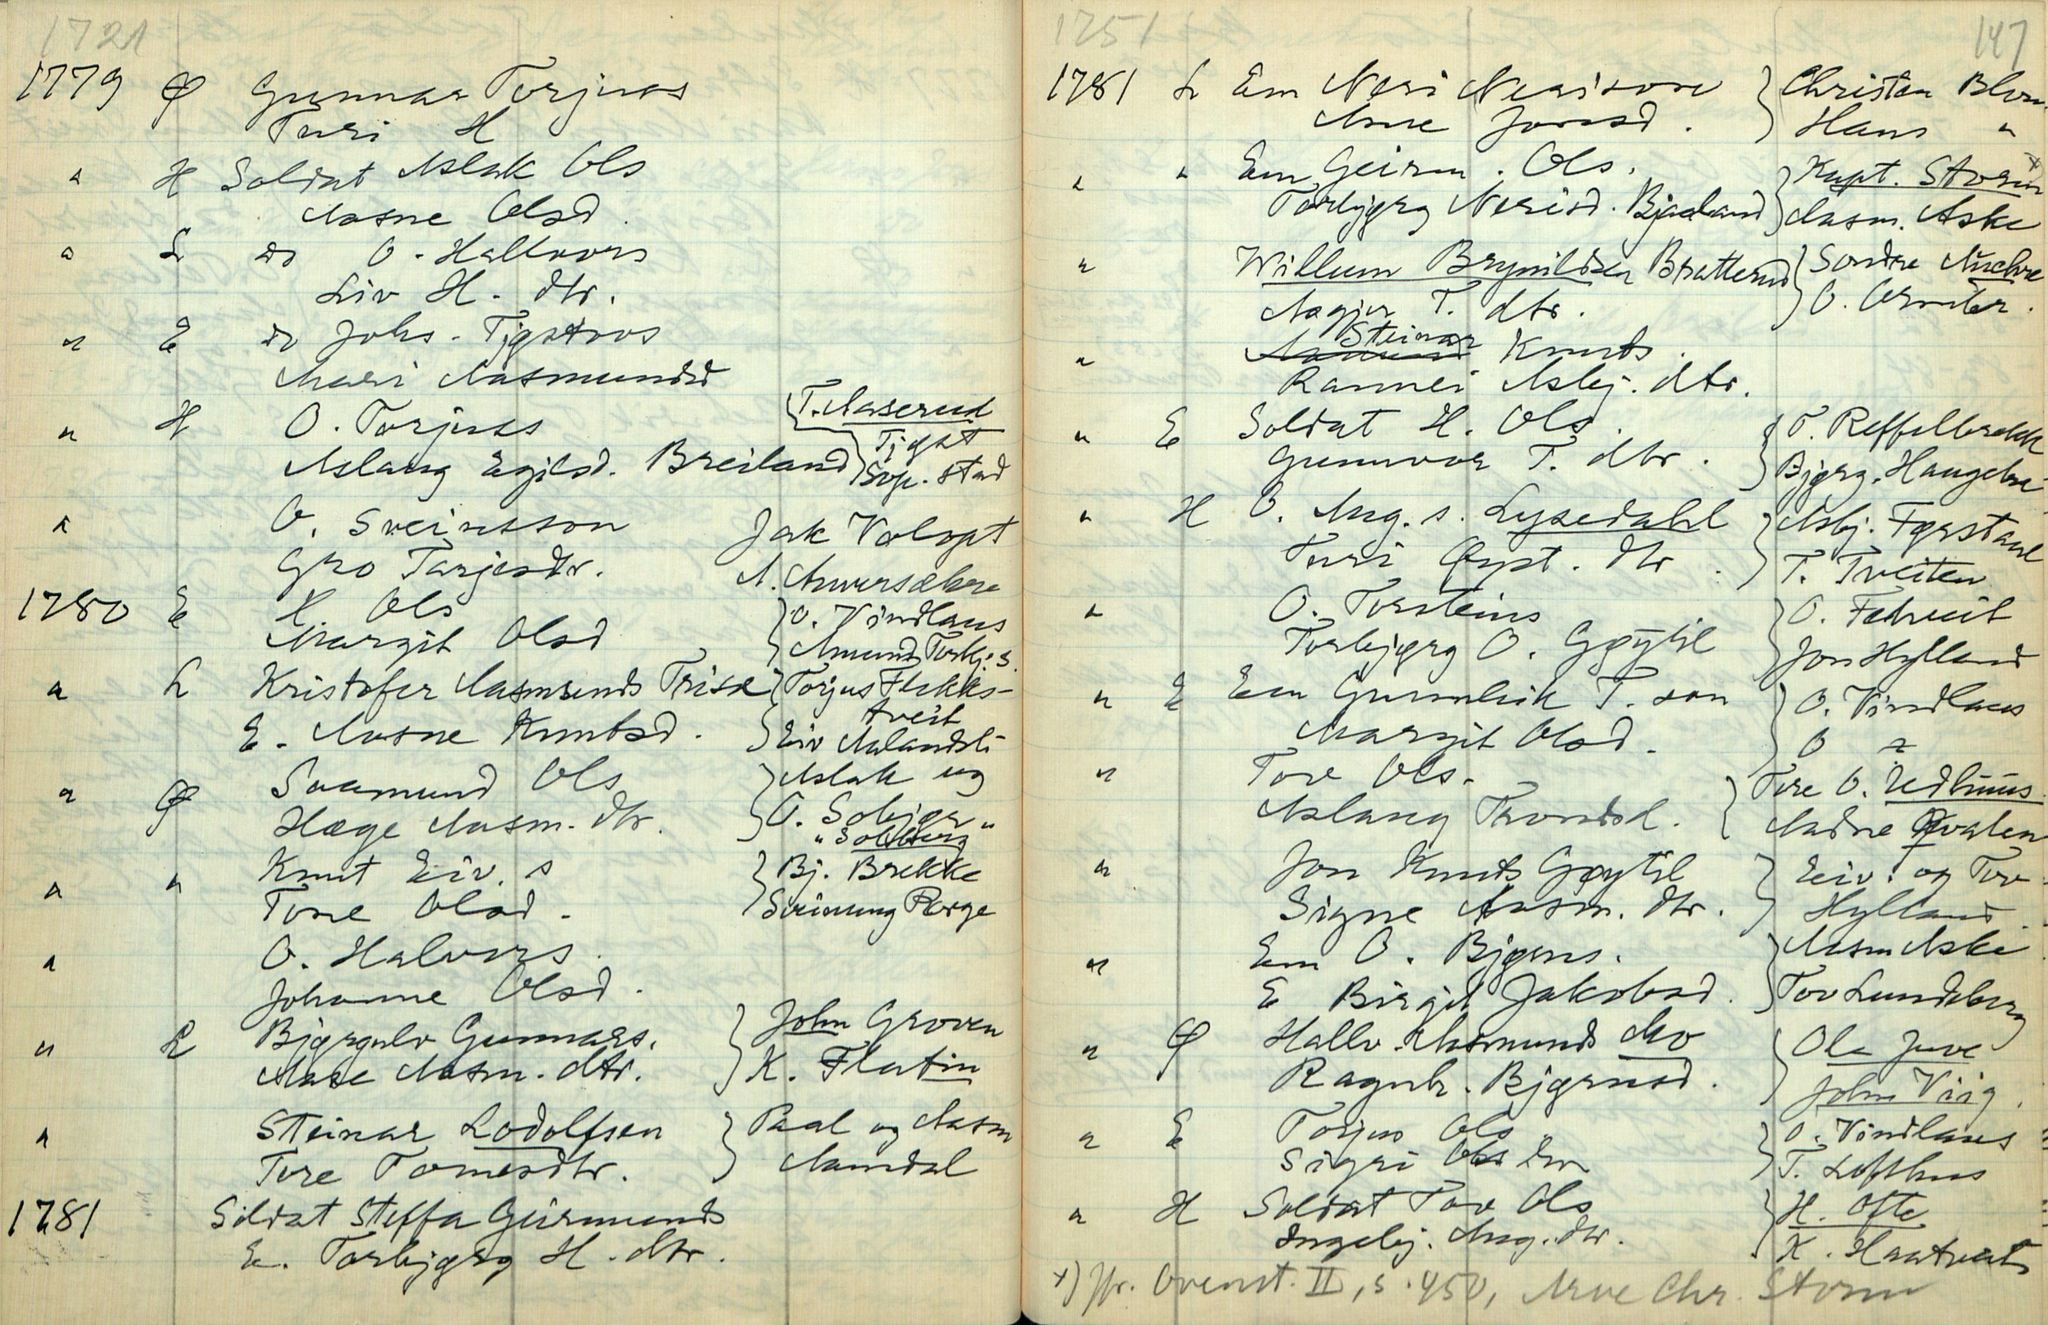 1721
1779 Ф Gunnar Torjus
Turi H
" H Soldat Aslak Ols
Aasne Olsd.
" L do O. Hallvors
Liv H. dtr.
" E do Johs. Tjøstøvs
Mari Aasmundsd
" H O. Torjus
Aslaug Egilsd. Breiland
T. Aaserud
Tjøst
Svp. Stad
" O. Sveinsson
Gro Tarjesdtr.
Jak Valopt
A.
1780 E K Ols
Margit Olsd
O. Vindlaus
Amund Torbj. s.
" L Kristofer Aasmunds Trisæ
E. Aasne Knutsd.
Torjus Flekks-
tveit
Eiv Aalandsli
" Ф Saamund Ols
Hæge Aasm. dtr.
Aslak og
O. Solbjør "
" Solberg
" " Knut Eiv. s
Tone Olsd.
Bj. Brekke
Sveinung Rorge
" O. Halvors
Johanne Olsd.
" L Bjørgulv Gunnars.
Aase Aasm. dtr.
John Groven
K. Flatin
" Steinar Lodolfsen
Tore Tomesdtr.
Paal og Aasm
Aamdal
1781 Soldat Steffa Geirmunds
E. Torbjørg H. dtr.
1751
147
1781 L Em Neri Nerisson
Anne Joresd.
Christen Blom
Hans "
" " Em Geirm. Ols.
Torbjørg Nerisd. Bjaaland
Kapt. Storm x
Aasm. Aske
" Willum Brynildsen Bratterud
Aagjer T. dtr.
Sondre
O.
" Steinar
Aamund Knuts.
Rannei Asbj. dtr.
" E Soldat H. Ols.
Gunnvor T. dtr.
T. Reffelbrekk
Bjørg. Haugebø
" H O. Aug. s. Lysedahl
Turi Øyst. dtr.
Asbj. Førstaul
T. Tveiten
" O. Torsteins
Torbjørg O. Gøytil
O. Fetveit
Jon Hylland
" E Em Gunnleik T. son
Margit Olsd.
O. Vindlaus
O "
" Tov Ols.
Aslaug Trondsd.
Tore O. Uedhuus
Aadne Qvalen
" Jon Knuts Gøytil
Signe Aasm. dtr.
Eiv. og Tov
Hylland
" Em O. Bjørns.
E Birgit Jakobsd.
Aasm Aske
Tov Lundeberg
" Ф Hallv. Aasmunds Mo
Ragnh. Bjørnsd.
Ole Juve
John Viig.
" E Torjus Ols
Sigri Ols dtr
O. Vindlaus
T. Lofthus
" H Soldat Tov Ols
Ingebj. Aug. dtr.
H. Ofte
K. Haatveit
x) jfr. Ovenst. II, s. 450, Arve Chr. Storm